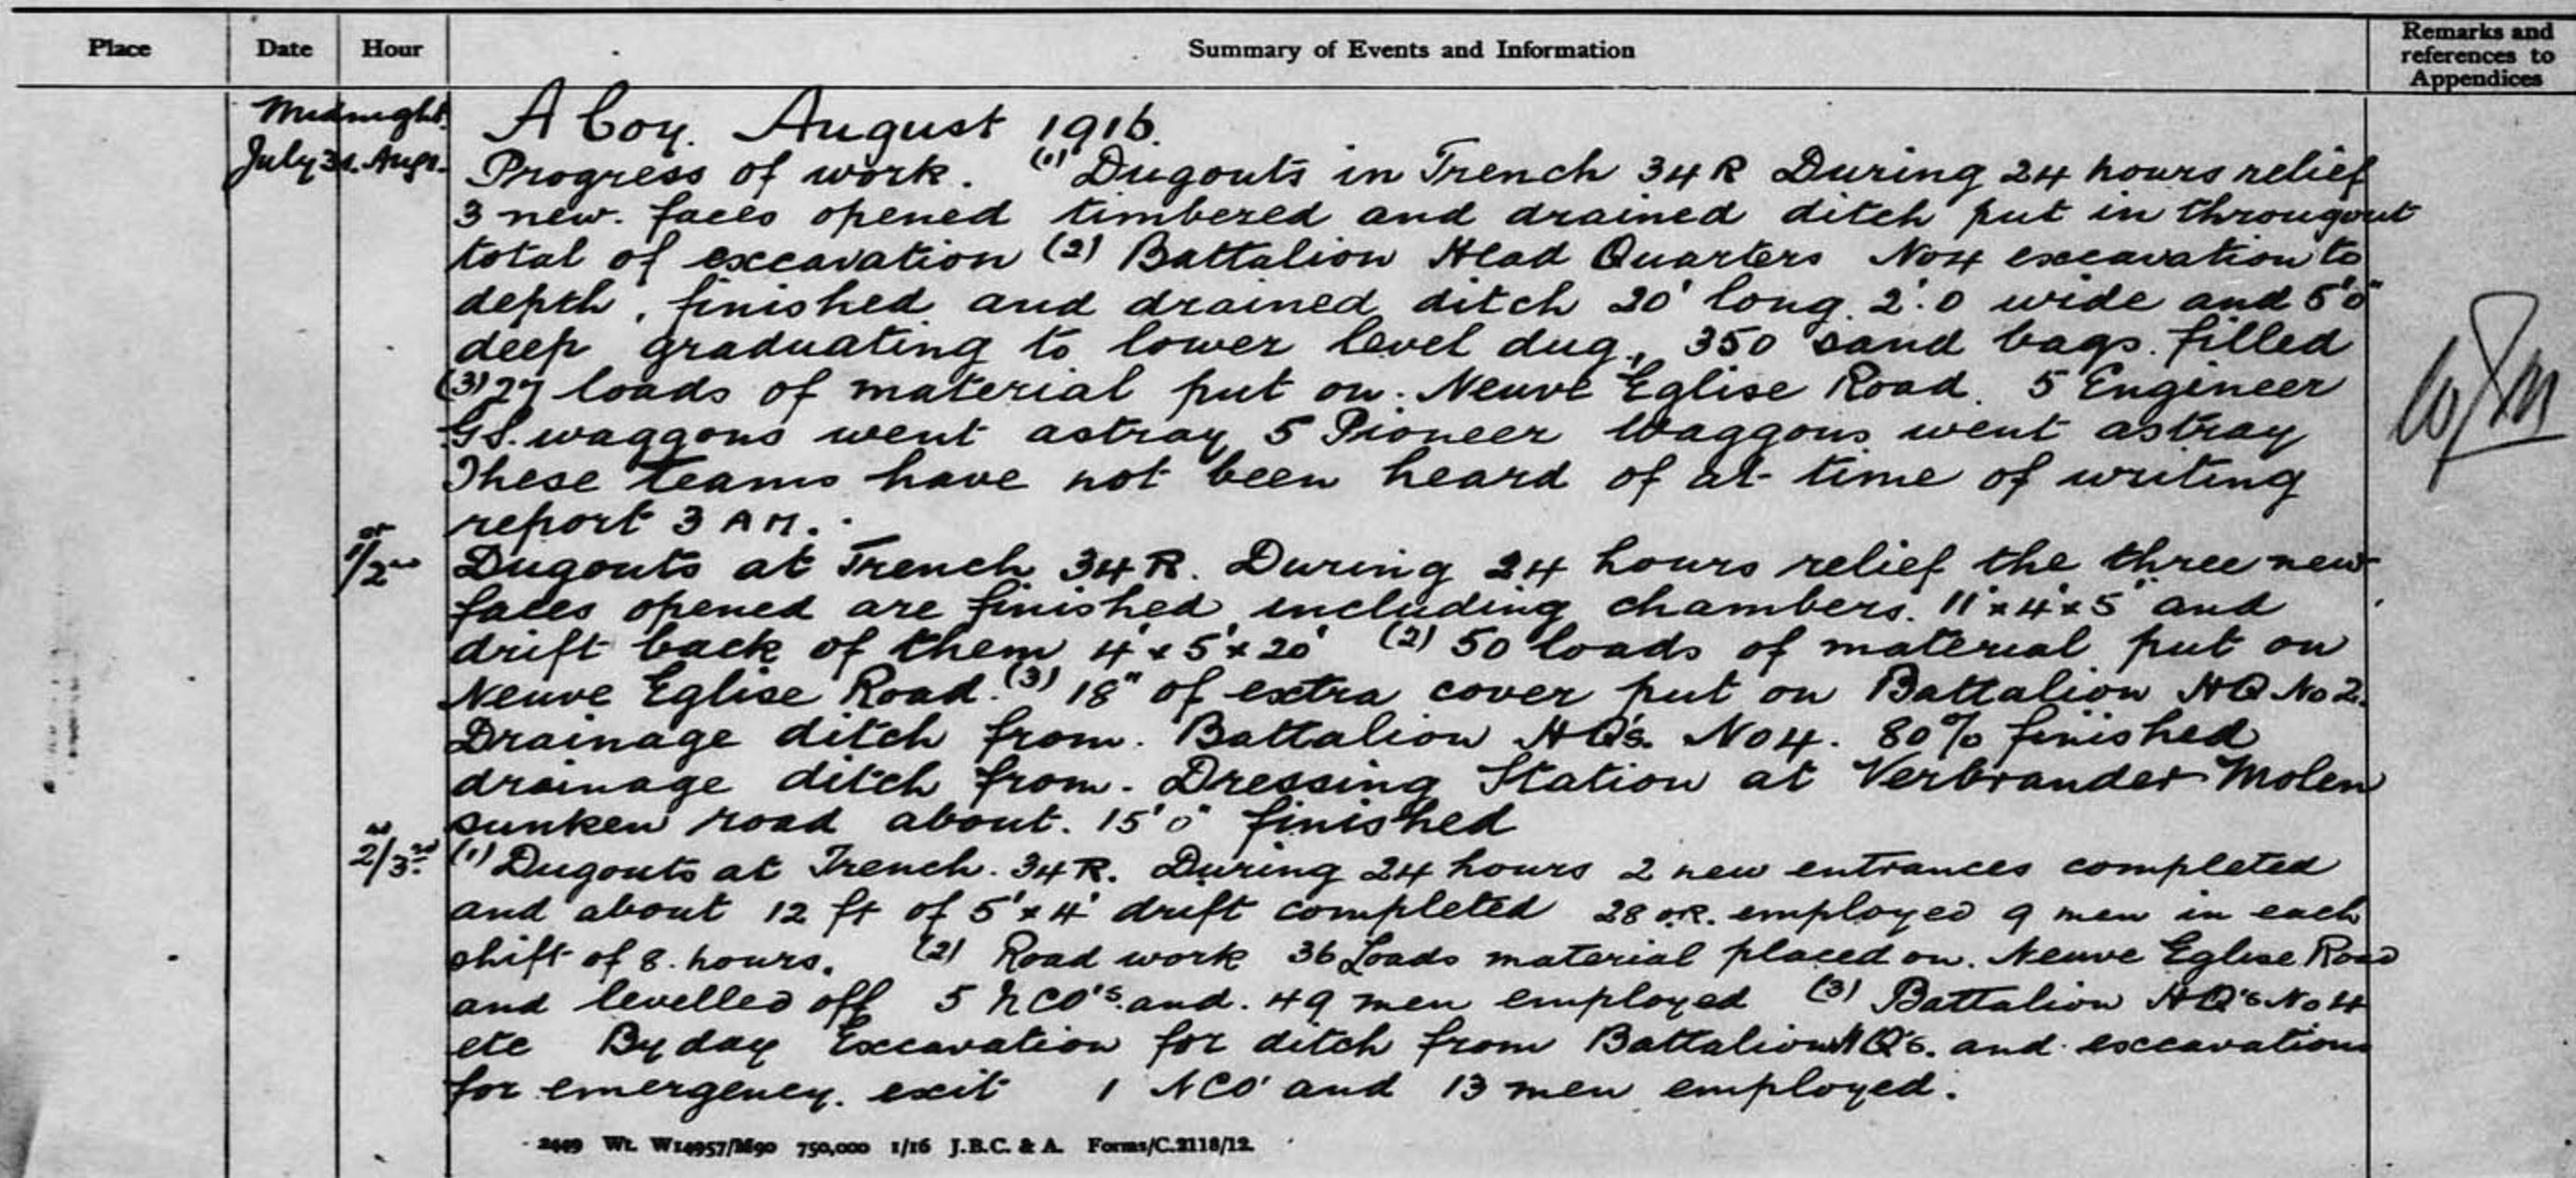 Place Date Hour Summary of Events and Information Remarks and references to Appendices
Midnight
July 31. Aug 1.
A Coy. August 1916.
Progress of work. (1) Dugouts in Trench 34R During 24 hours relief
3 new. faces opened timbered and drained ditch put in througout
total of excavation (2) Battalion Head Quarters No4 excavation to
depth, finished and drained ditch 20' long. 2'.0 wide and 5'0"
deep graduating to lower level dug, 350 sand bags. filled
(3) 27 loads of material put on. Neuve Eglise Road. 5 Engineer
G.S. waggons went astray 5 Pioneer Waggons went astray
These teams have not been heard of at time of writing
report 3 AM.
1/2nd
Dugouts at Trench 34R. During 24 hours relief the three new
faces opened are finished, including chambers. 11' x 4' x 5' and
drift back of them 4' x 5' x 20' (2) 50 loads of material put on
Neuve Eglise Road. (3) 18" of extra cover put on Battalion HQ No 2.
Drainage ditch from. Battalion HQ's. No4. 80% finished
drainage ditch from. Dressing Station at Verbrander Molen
sunken road about. 15'0" finished
2/3rd
(1) Dugouts at Trench. 34R. During 24 hours 2 new entrances completed
and about 12 ft of 5' x 4' drift completed 28 O.R. employed 9 men in each
shift of 8. hours. (2) Road work 36 Loads material placed on. Neuve Eglise Road
and levelled off 5 NCO's. and. 49 men employed (3) Battalion HQ's No 4
etc By day Excavation for ditch from Battalion HQ's. and excavations
for emergency. exit 1 NCO and 13 men employed.
2449 Wt. W14957/M90 750,000 1/16 J.B.C. & A. Forms/C.2118/12.